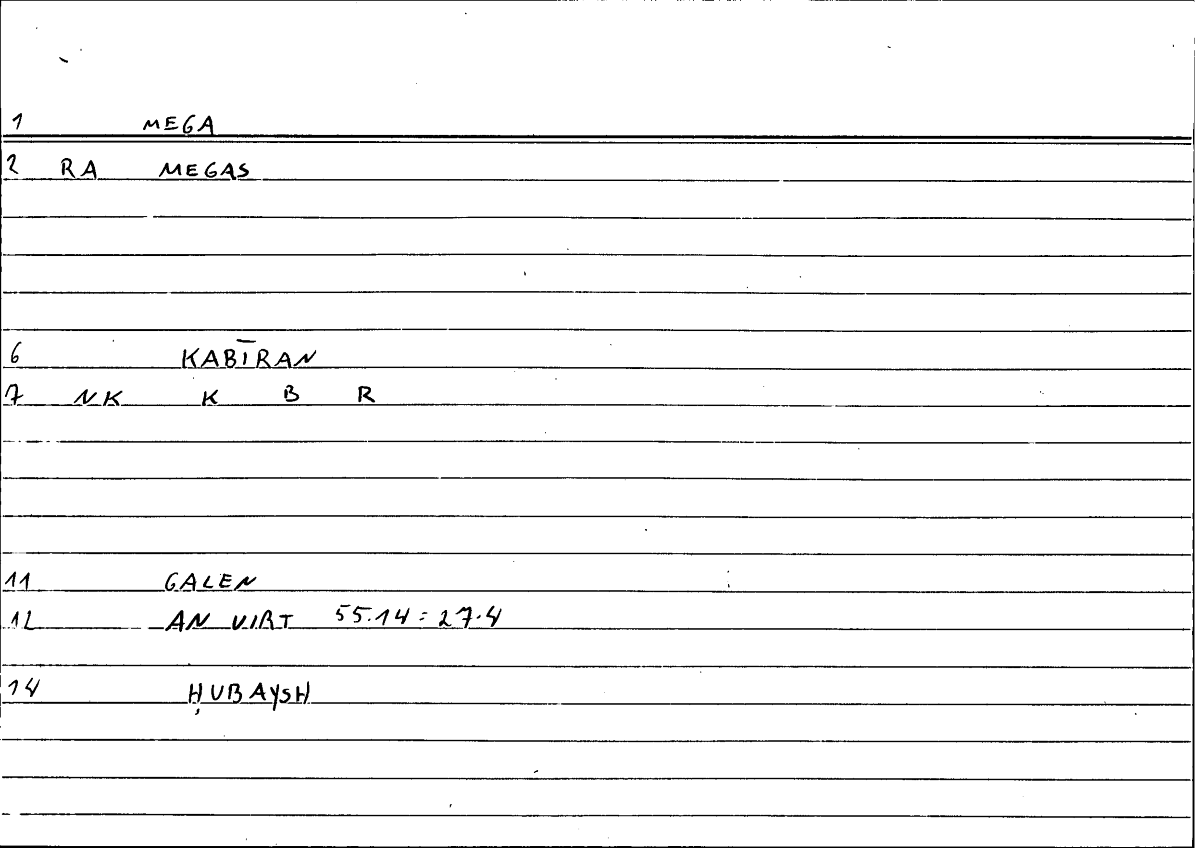 1 MEGA
2 RA MEGAS
6 KABĪRAN
7 NK K B R
11 GALEN
12 AN VIRT 55.14 = 27.4
14 ḤUBAYSH